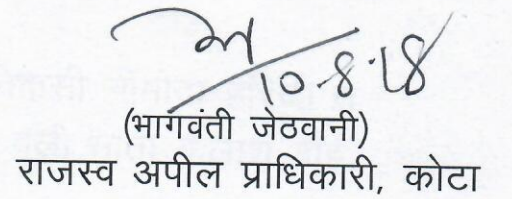 10.8.18
(भागवंती जेठवानी)
राजस्व अपील प्राधिकारी, कोटा